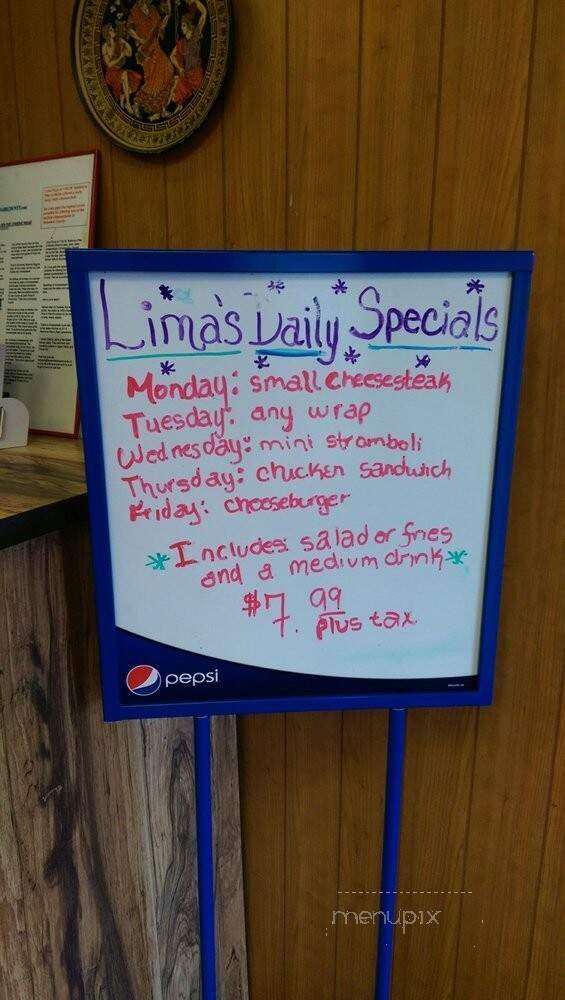 Lima's Daily Specials
Monday: small cheesesteak
Tuesday: any wrap
Wednesday: mini stromboli
Thursday: chicken sandwich
Friday: cheeseburger
*Includes: salad or fries
and a medium drink*
$7.99
plus tax
pepsi
menupix